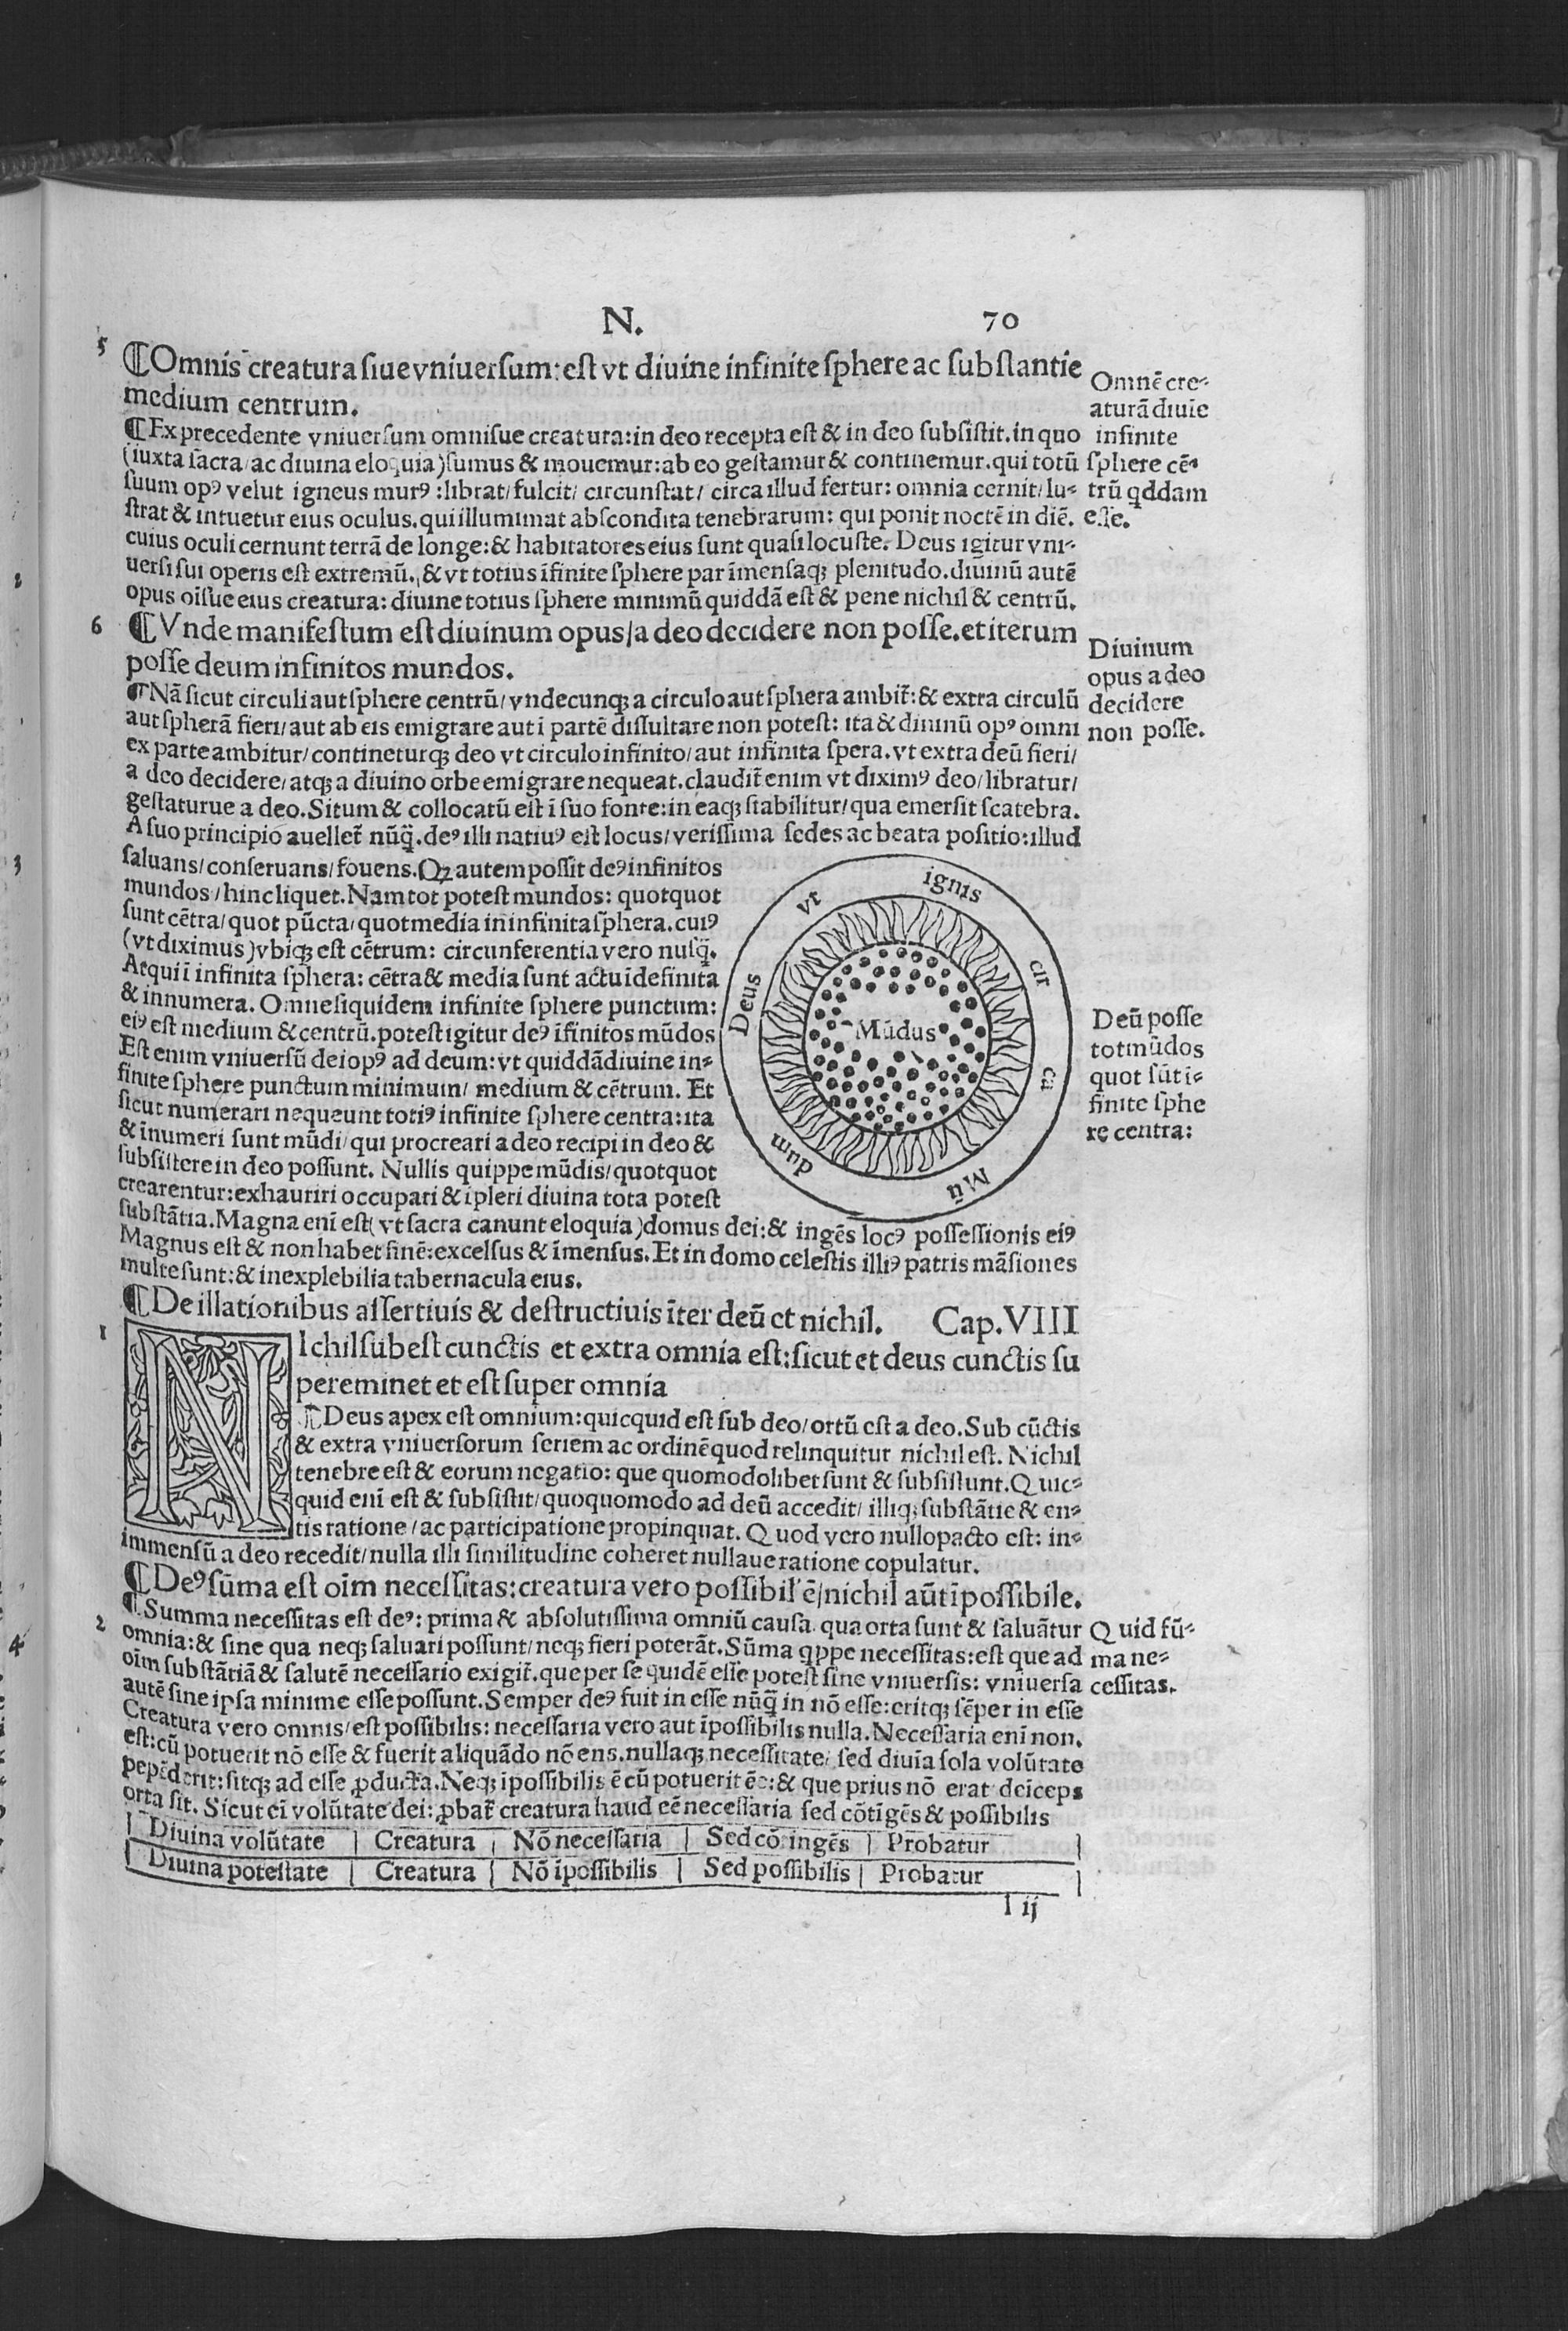 N. 70
5
¶Omnis creatura siue vniuersum: est vt diuine infinite sphere ac substantie
medium centrum.
Omnẽ cre⸗
aturã diuĩe
infinite
sphere cẽ⸗
trũ qddam
esse.
¶Ex precedente vniuersum omnisue creatura: in deo recepta est & in deo subsistit. in quo
(iuxta sacra/ac diuina eloquia) sumus & mouemur: ab eo gestamur & continemur. qui totũ
suum opꝰ velut igneus murꝰ: librat/fulcit/circunstat/circa illud fertur: omnia cernit/lu⸗
strat & intuetur eius oculus. qui illuminat abscondita tenebrarum: qui ponit noctẽ in diẽ.
cuius oculi cernunt terrã de longe: & habitatores eius sunt quasi locuste. Deus igitur vni⸗
uersi sui operis est extremũ. & vt totius ĩfinite sphere par ĩmensaqꝫ plenitudo. diuinũ autẽ
opus oĩsue eius creatura: diuine totius sphere minimũ quiddã est & pene nichil & centrũ.
6
¶Vnde manifestum est diuinum opus/a deo decidere non posse. et iterum
posse deum infinitos mundos.
Diuinum
opus a deo
decidere
non posse.
¶Nã sicut circuli aut sphere centrũ/vndecunqꝫ a circulo aut sphera ambit᷑: & extra circulũ
aut spherã fieri/aut ab eis emigrare aut ĩ partẽ dissultare non potest: ita & diuinũ opꝰ omni
ex parte ambitur/contineturqꝫ deo vt circulo infinito/aut infinita spera. vt extra deũ fieri/
a deo decidere/atqꝫ a diuino orbe emigrare nequeat. claudit᷑ enim vt diximꝰ deo/libratur/
gestaturue a deo. Situm & collocatũ est ĩ suo fonte: in eaqꝫ stabilitur/qua emersit scatebra.
A suo principio auellet᷑ nũq̃. deꝰ illi natiuꝰ est locus/verissima sedes ac beata positio: illud
saluans/conseruans/fouens. Qꝫ autem possit deꝰ infinitos
mundos/hinc liquet. Nam tot potest mundos: quotquot
sunt cẽtra/quot pũcta/quot media in infinita sphera. cuiꝰ
(vt diximus) vbiqꝫ est cẽtrum: circunferentia vero nusq̃.
Atqui ĩ infinita sphera: cẽtra & media sunt actu ĩdefinita
& innumera. Omne siquidem infinite sphere punctum:
eiꝰ est medium & centrũ. potest igitur deꝰ ĩfinitos mũdos
Est enim vniuersũ dei opꝰ ad deum: vt quiddã diuine in⸗
finite sphere punctum minimum/medium & cẽtrum. Et
sicut numerari nequeunt totiꝰ infinite sphere centra: ita
& ĩnumeri sunt mũdi/qui procreari a deo recipi in deo &
subsistere in deo possunt. Nullis quippe mũdis/quotquot
crearentur: exhauriri occupari & ĩpleri diuina tota potest
substãtia. Magna enĩ est (vt sacra canunt eloquia) domus dei: & ingẽs locꝰ possessionis eiꝰ
Magnus est & non habet finẽ: excelsus & ĩmensus. Et in domo celestis illiꝰ patris mãsiones
multe sunt: & inexplebilia tabernacula eius.
Deus vt ignis cir ca Mũ dum
Mũdus
Deũ posse
tot mũdos
quot sũt ĩ⸗
finite sphe
rę centra:
¶De illationibus assertiuis & destructiuis ĩter deũ et nichil. Cap. VIII
1
NIchil subest cunctis et extra omnia est: sicut et deus cunctis su
pereminet et est super omnia
¶Deus apex est omnium: quicquid est sub deo/ortũ est a deo. Sub cũctis
& extra vniuersorum seriem ac ordinẽ quod relinquitur nichil est. Nichil
tenebre est & eorum negatio: que quomodolibet sunt & subsistunt. Quic⸗
quid enĩ est & subsistit/quoquomodo ad deũ accedit/illiqꝫ substãtie & en⸗
tis ratione/ac participatione propinquat. Quod vero nullo pacto est: in⸗
immensũ a deo recedit/nulla illi similitudine coheret nullaue ratione copulatur.
¶Deꝰ sũma est oĩm necessitas: creatura vero possibil' ẽ/nichil aũt ĩpossibile.
2
Quid sũ⸗
ma ne⸗
cessitas.
¶Summa necessitas est deꝰ: prima & absolutissima omniũ causa. qua orta sunt & saluãtur
omnia: & sine qua neqꝫ saluari possunt/neqꝫ fieri poterãt. Sũma qppe necessitas: est que ad
oĩm substãtiã & salutẽ necessario exigit᷑. que per se quidẽ esse potest sine vniuersis: vniuersa
autẽ sine ipsa minime esse possunt. Semper deꝰ fuit in esse nũq̃ in nõ esse: eritqꝫ sẽper in esse
Creatura vero omnis/est possibilis: necessaria vero aut ĩpossibilis nulla. Necessaria enĩ non.
est: cũ potuerit nõ esse & fuerit aliquãdo nõ ens. nullaqꝫ necessitate/sed diuĩa sola volũtate
pepẽderit: sitqꝫ ad esse ꝓducta. Neqꝫ ĩpossibilis ẽ cũ potuerit ẽe: & que prius nõ erat deĩceps
orta sit. Sicut eĩ volũtate dei: ꝓbat᷑ creatura haud eẽ necessaria sed cõtĩgẽs & possibilis
Diuina volũtate | Creatura | Nõ necessaria | Sed cõtingẽs | Probatur
Diuina potestate | Creatura | Nõ ĩpossibilis | Sed possibilis | Probatur
l ij